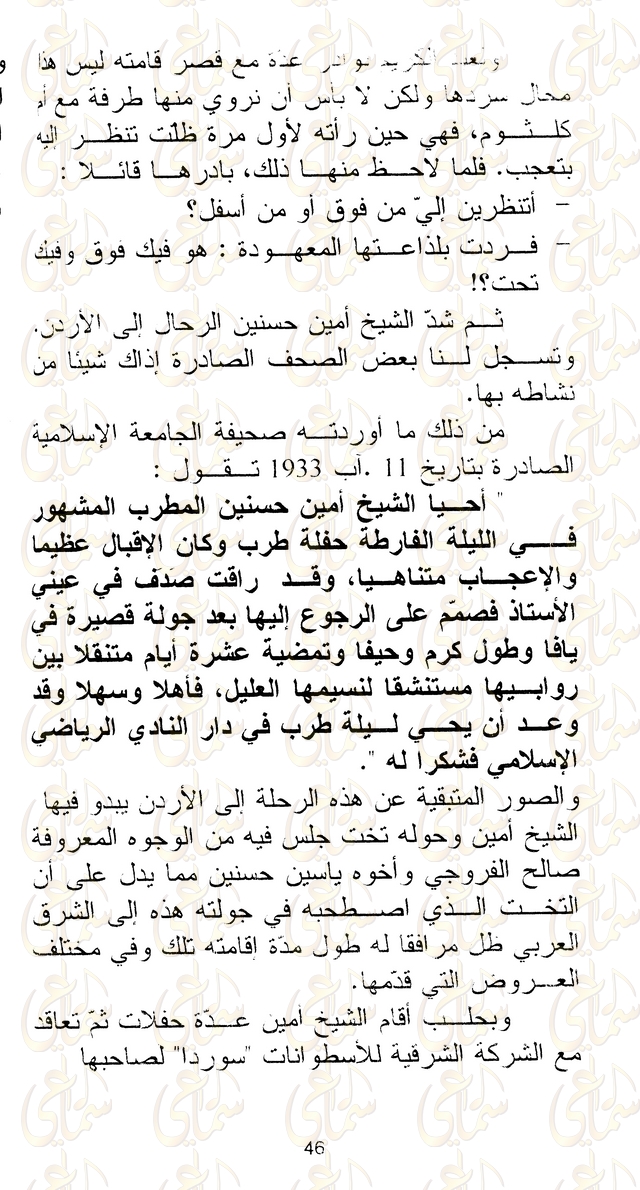 ولعبد الكريم نوادر عدّة مع قصر قامته ليس هذا
مجال سردها ولكن لا بأس أن نروي منها طرفة مع أم
كلثوم، فهي حين رأته لأول مرة ظلّت تنظر إليه
بتعجب. فلما لاحظ منها ذلك، بادرها قائلا :
- أتنظرين إليّ من فوق أو من أسفل؟
- فردت بلذاعتها المعهودة : هو فيك فوق وفيك
تحت؟!
ثم شدّ الشيخ أمين حسنين الرحال إلى الأردن.
وتسجل لنا بعض الصحف الصادرة إذاك شيئا من
نشاطه بها.
من ذلك ما أوردته صحيفة الجامعة الإسلامية
الصادرة بتاريخ 11 .آب 1933 تقول :
" أحيا الشيخ أمين حسنين المطرب المشهور
في الليلة الفارطة حفلة طرب وكان الإقبال عظيما
والإعجاب متناهيا، وقد راقت صدَف في عيني
الأستاذ فصمّم على الرجوع إليها بعد جولة قصيرة في
يافا وطول كرم وحيفا وتمضية عشرة أيام متنقلا بين
روابيها مستنشقا لنسيمها العليل، فأهلا وسهلا وقد
وعد أن يحي ليلة طرب في دار النادي الرياضي
الإسلامي فشكرا له ".
والصور المتبقية عن هذه الرحلة إلى الأردن يبدو فيها
الشيخ أمين وحوله تخت جلس فيه من الوجوه المعروفة
صالح الفروجي وأخوه ياسين حسنين مما يدل على أن
التخت الذي اصطحبه في جولته هذه إلى الشرق
العربي ظل مرافقا له طول مدّة إقامته تلك وفي مختلف
العروض التي قدّمها.
وبحلب أقام الشيخ أمين عدّة حفلات ثمّ تعاقد
مع الشركة الشرقية للأسطوانات "سوردا" لصاحبها
46